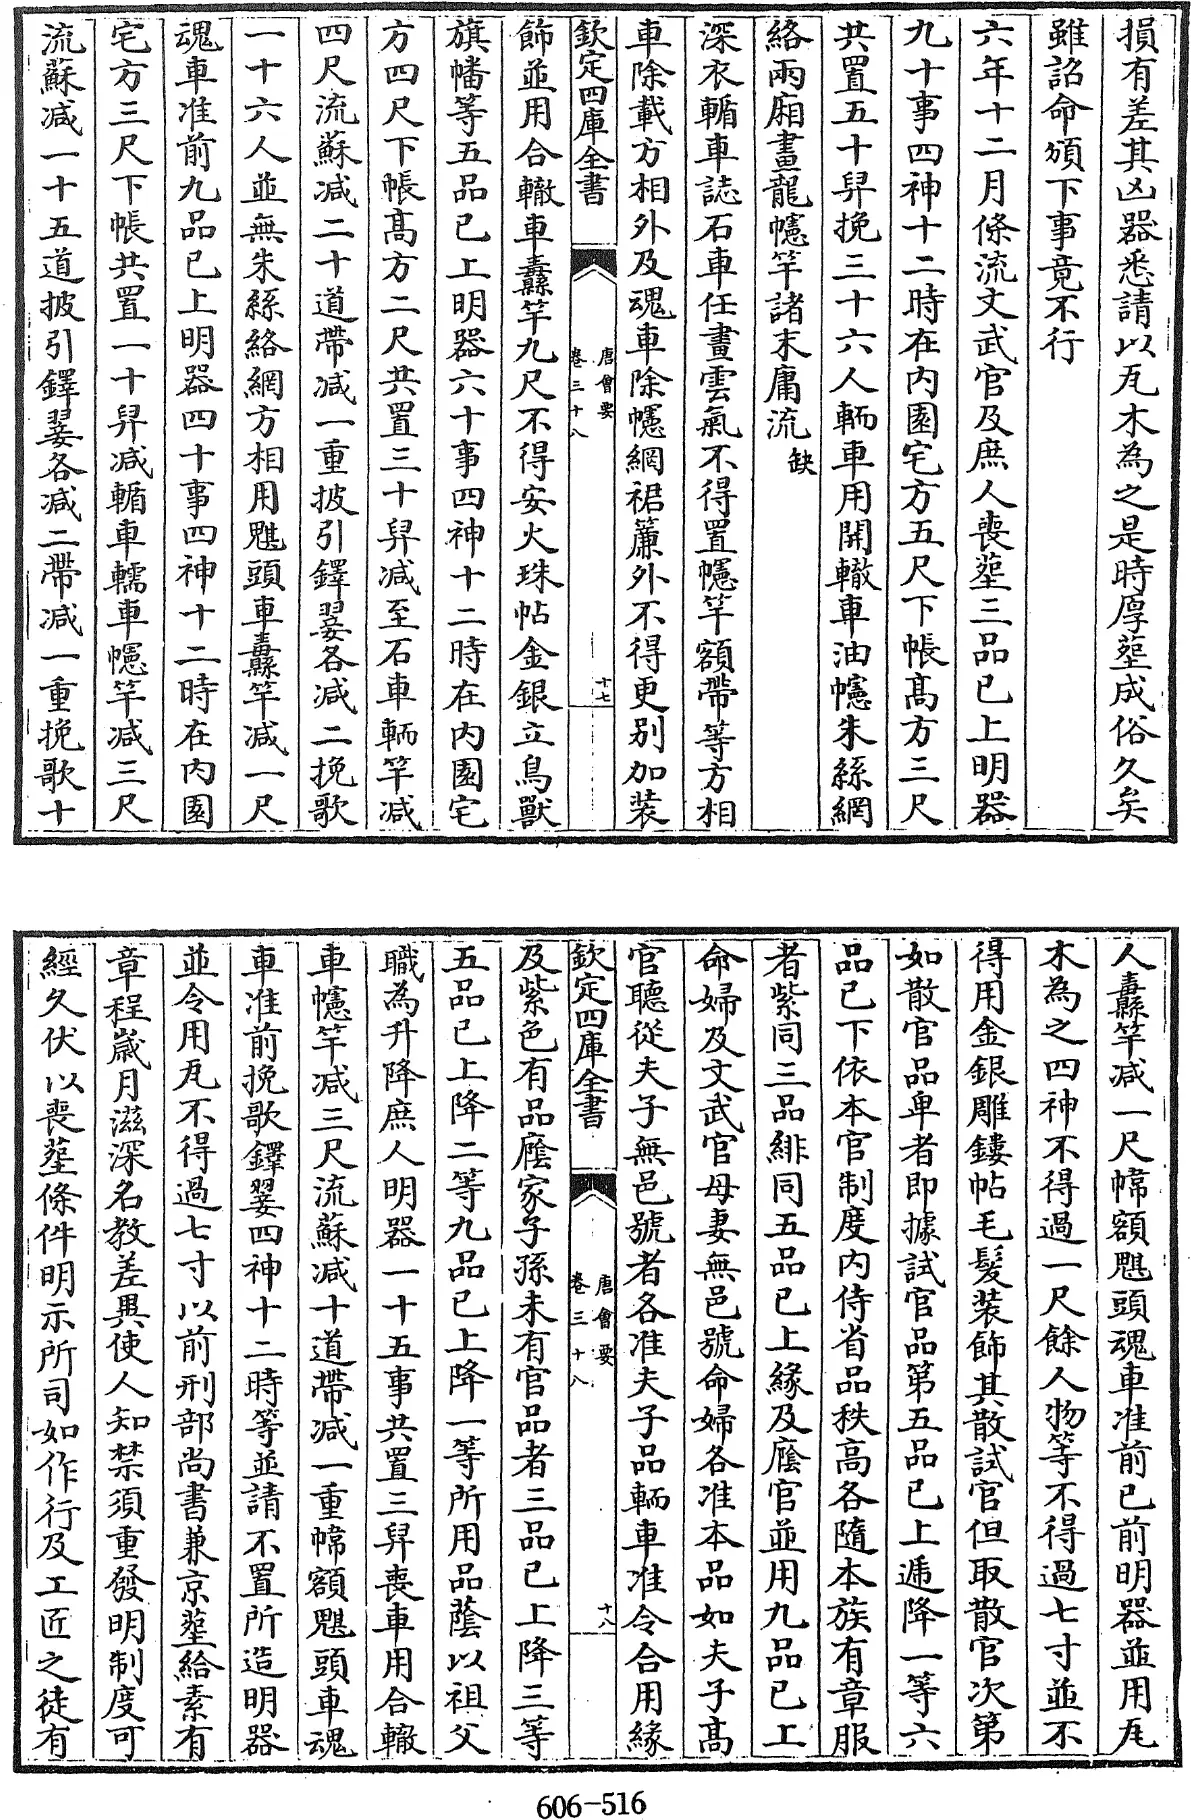 損有差其凶器悉請以瓦木為之是時厚塟成俗久矣
雖詔命頒下事竟不行
六年十二月條流文武官及庶人喪塟三品已上明器
九十事四神十二時在内園宅方五尺下帳髙方三尺
共置五十舁挽三十六人輀車用開轍車油幰朱絲網
絡兩廂畫龍幰竿諸末庸流缺
深衣輴車誌石車任畫雲氣不得置幰竿額帶等方相
車除載方相外及魂車除幰網裙簾外不得更别加装
飾並用合轍車纛竿九尺不得安火珠帖金銀立鳥獸
旗幡等五品已上明器六十事四神十二時在内園宅
方四尺下帳髙方二尺共置三十舁减至石車輀竿减
四尺流蘇减二十道帶减一重披引鐸翣各减二挽歌
一十六人並無朱絲絡網方相用魌頭車纛竿减一尺
魂車准前九品已上明器四十事四神十二時在内園
宅方三尺下帳共置一十舁减輴車轜車幰竿减三尺
流蘇减一十五道披引鐸翣各减二帶减一重挽歌十
欽定四庫全書
唐會要
卷三十八
十七
人纛竿减一尺幃額魌頭魂車准前已前明器並用瓦
木為之四神不得過一尺餘人物等不得過七寸並不
得用金銀雕鏤帖毛髮装飾其散試官但取散官次第
如散官品卑者即據試官品第五品已上遞降一等六
品已下依本官制度内侍省品秩髙各隨本族有章服
者紫同三品緋同五品已上緣及廕官並用九品已上
命婦及文武官母妻無邑號命婦各准本品如夫子髙
官聽從夫子無邑號者各准夫子品輀車准令合用緣
及紫色有品廕家子孫未有官品者三品已上降三等
五品已上降二等九品已上降一等所用品蔭以祖父
職為升降庶人明器一十五事共置三舁喪車用合轍
車幰竿减三尺流蘇减十道帶减一重幃額魌頭車魂
車准前挽歌鐸翣四神十二時等並請不置所造明器
並令用瓦不得過七寸以前刑部尚書兼京塟給素有
章程歲月滋深名教差異使人知禁須重發明制度可
經久伏以喪塟條件明示所司如作行及工匠之徒有
欽定四庫全書
唐會要
卷三十八
十八
606-516